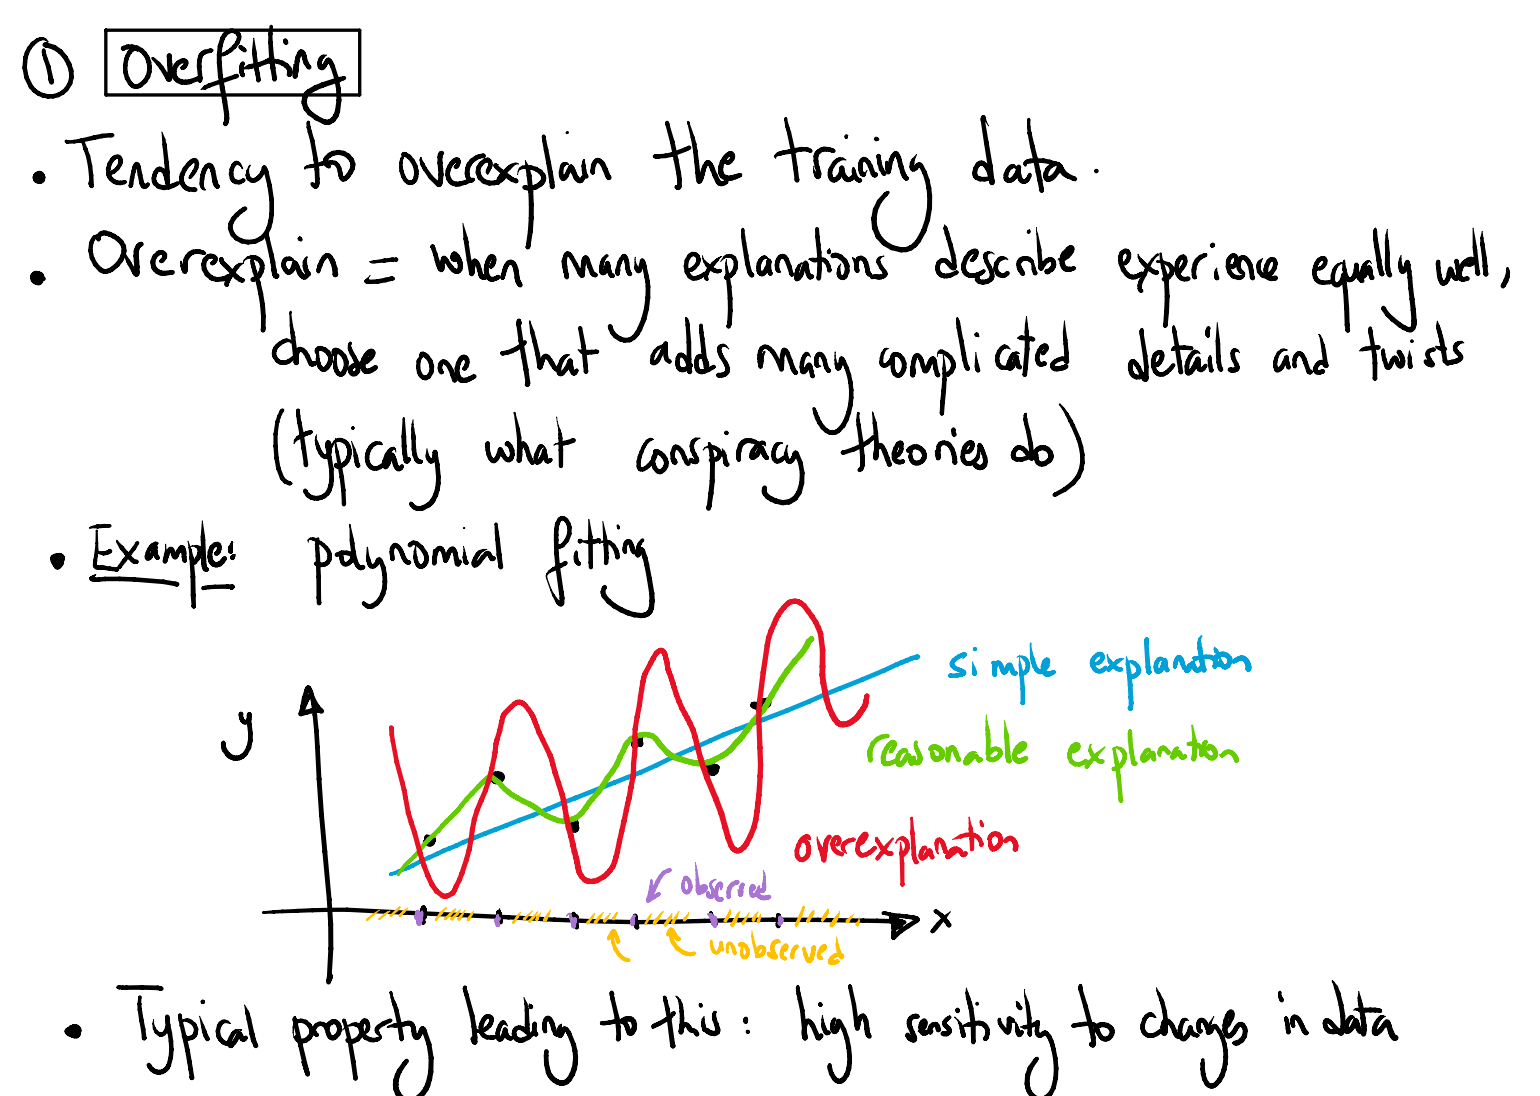 ① Overfitting
• Tendency to overexplain the training data.
• Overexplain = when many explanations describe experience equally well,
choose one that adds many complicated details and twists
(typically what conspiracy theories do)
• Example: polynomial fitting
simple explanation
y
reasonable explanation
overexplanation
observed
x
unobserved
• Typical property leading to this: high sensitivity to changes in data